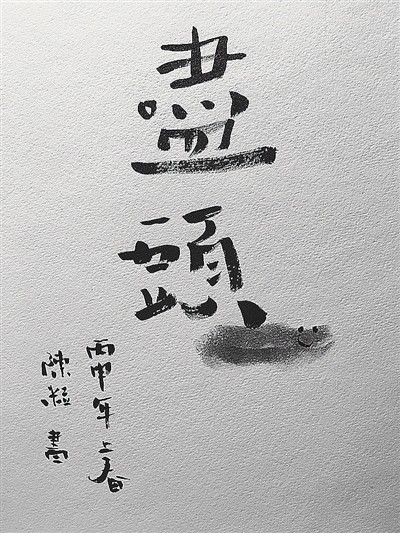 盡頭
丙申年上春
陳粒 書